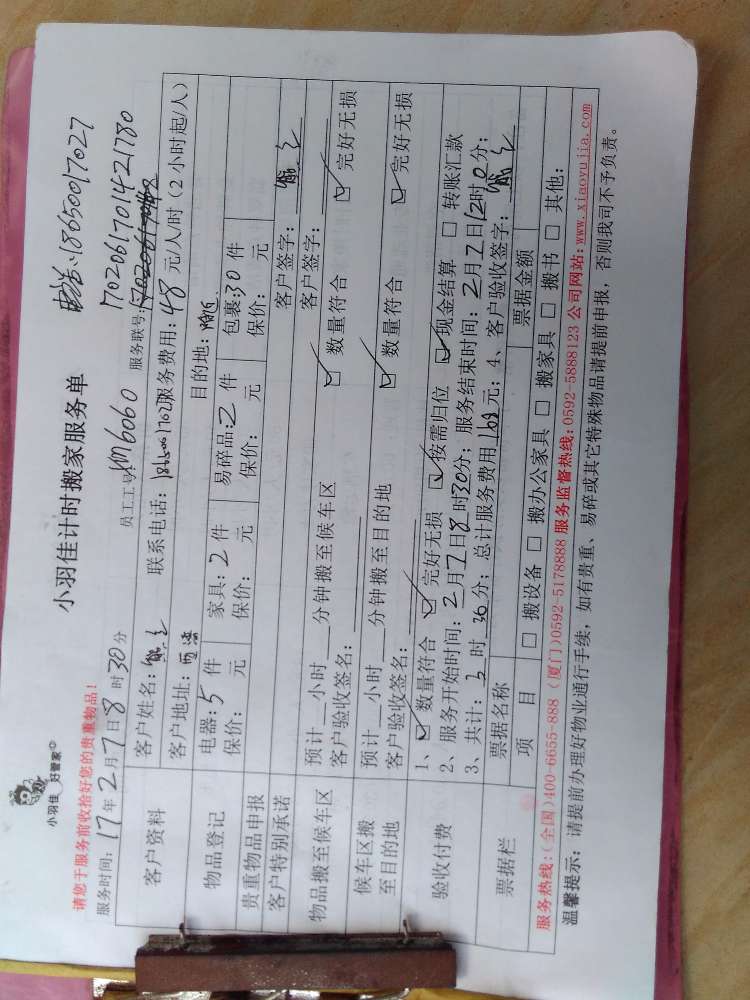 小羽佳 好管家
小羽佳计时搬家服务单
18650017027
请您于服务前收拾好您的贵重物品！
1702061701421780
服务时间：17年2月7日8时30分 员工工号：XM6060 服务联号：
客户资料 客户姓名： 联系电话：18650017027 服务费用：48元/人/时（2小时起/人）
客户地址： 目的地：
物品登记 电器：5件 家具：2件 易碎品：2件 包裹：30件
贵重物品申报 保价： 元 保价： 元 保价： 元 保价： 元
客户特别承诺 客户签字：
物品搬至候车区 预计__小时__分钟搬至候车区 客户签字：
客户验收签名： ☑数量符合 ☑完好无损
候车区搬至目的地 预计__小时__分钟搬至目的地
客户验收签名： ☑数量符合 ☑完好无损
验收付费 1、☑数量符合 ☑完好无损 ☑按需归位 ☑现金结算 □转账汇款
2、服务开始时间：2月7日8时30分；服务结束时间：2月7日12时0分；
3、共计：3时36分；总计服务费用168元；4、客户验收签字：
票据栏 票据名称 票据金额
项 目 □搬设备 □搬办公家具 □搬家具 □搬书 □其他：
服务热线：（全国）400-6655-888（厦门）0592-5178888 服务监督热线：0592-5888123 公司网站：www.xiaoyujia.com
温馨提示：请提前办理好物业通行手续，如有贵重、易碎或其它特殊物品请提前申报，否则我司不予负责。